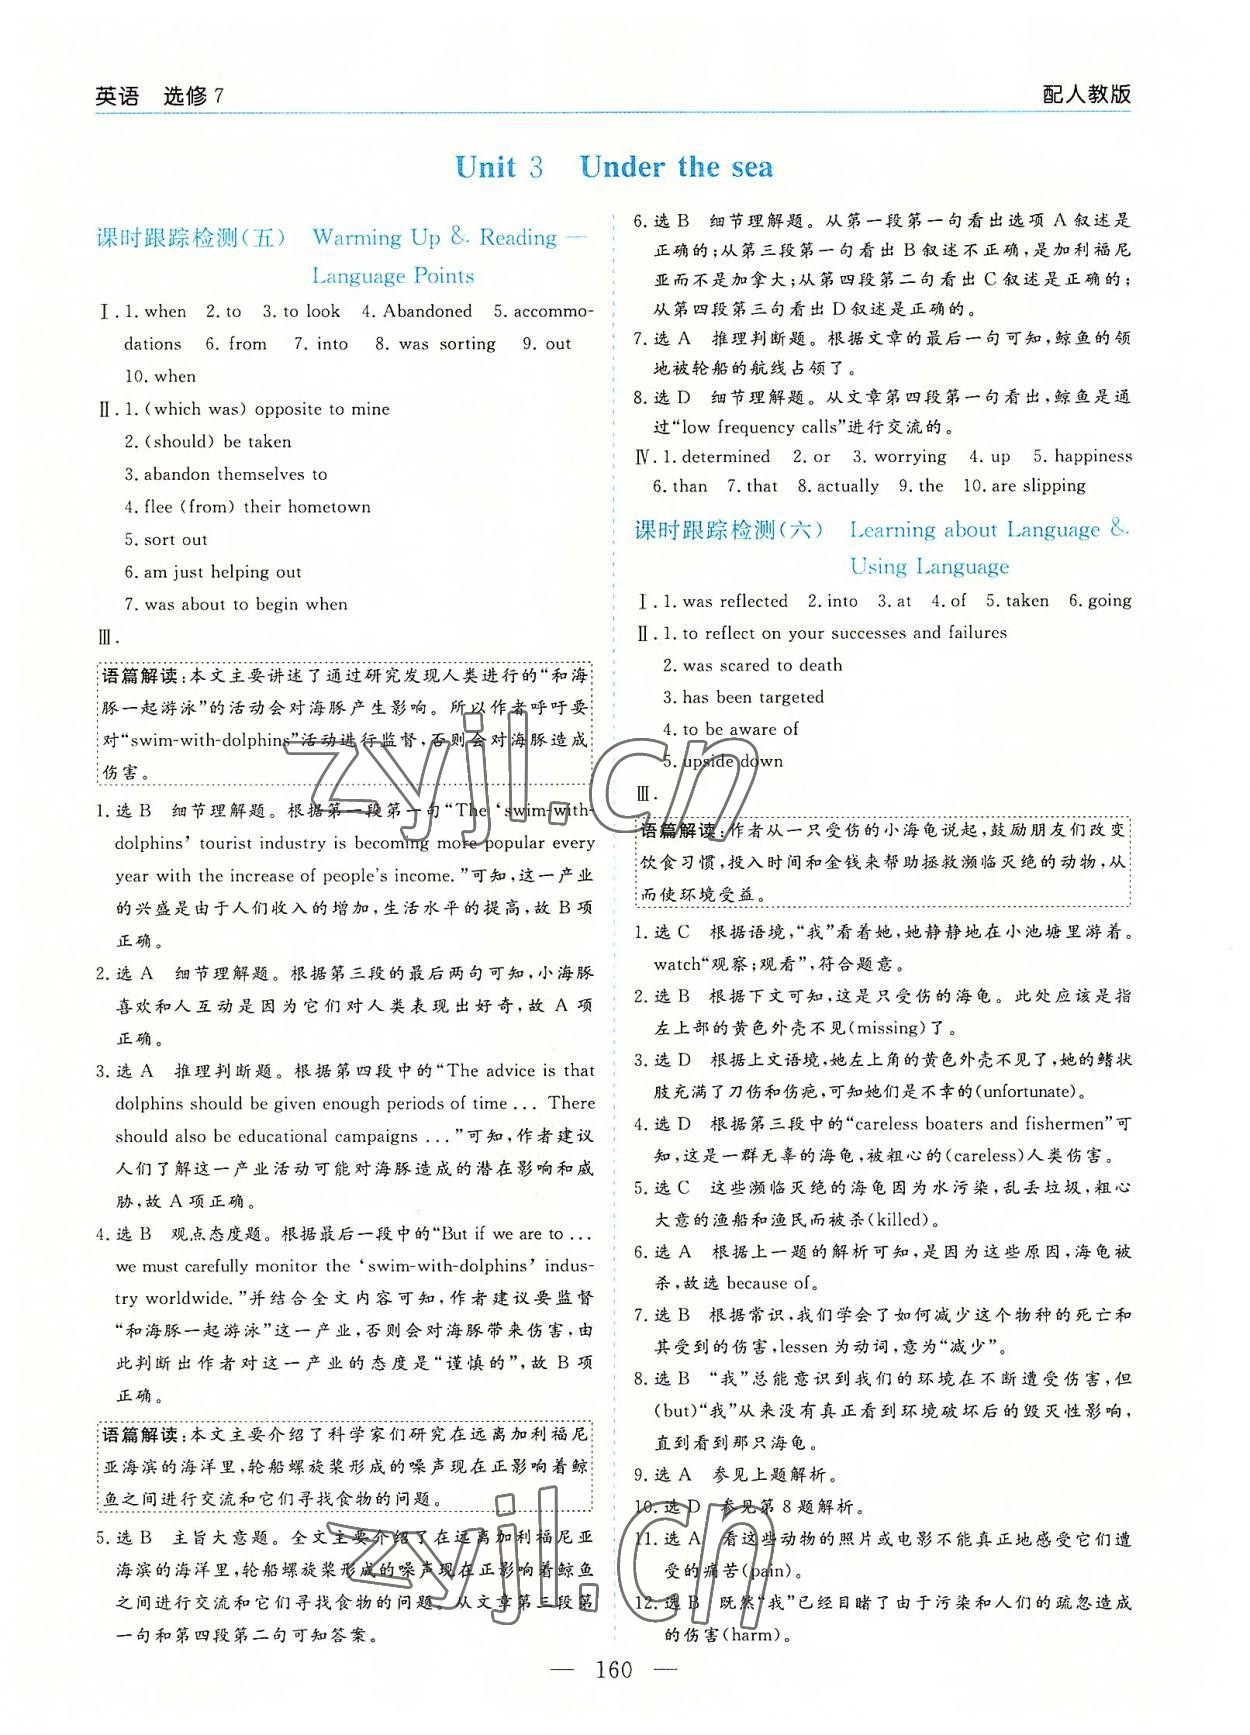 英语　选修7
配人教版
Unit 3　Under the sea
课时跟踪检测(五)　Warming Up & Reading —
Language Points
Ⅰ. 1. when　2. to　3. to look　4. Abandoned　5. accommo-
dations　6. from　7. into　8. was sorting　9. out
10. when
Ⅱ. 1. (which was) opposite to mine
2. (should) be taken
3. abandon themselves to
4. flee (from) their hometown
5. sort out
6. am just helping out
7. was about to begin when
Ⅲ.
语篇解读:本文主要讲述了通过研究发现人类进行的“和海
豚一起游泳”的活动会对海豚产生影响。所以作者呼吁要
对“swim-with-dolphins”活动进行监督,否则会对海豚造成
伤害。
1. 选 B　细节理解题。根据第一段第一句“The ‘swim-with-
dolphins’ tourist industry is becoming more popular every
year with the increase of people's income.”可知,这一产业
的兴盛是由于人们收入的增加,生活水平的提高,故 B 项
正确。
2. 选 A　细节理解题。根据第三段的最后两句可知,小海豚
喜欢和人互动是因为它们对人类表现出好奇,故 A 项
正确。
3. 选 A　推理判断题。根据第四段中的“The advice is that
dolphins should be given enough periods of time ... There
should also be educational campaigns ...”可知,作者建议
人们了解这一产业活动可能对海豚造成的潜在影响和威
胁,故 A 项正确。
4. 选 B　观点态度题。根据最后一段中的“But if we are to ...
we must carefully monitor the ‘swim-with-dolphins’ indus-
try worldwide.”并结合全文内容可知,作者建议要监督
“和海豚一起游泳”这一产业,否则会对海豚带来伤害,由
此判断出作者对这一产业的态度是“谨慎的”,故 B 项
正确。
语篇解读:本文主要介绍了科学家们研究在远离加利福尼
亚海滨的海洋里,轮船螺旋桨形成的噪声现在正影响着鲸
鱼之间进行交流和它们寻找食物的问题。
5. 选 B　主旨大意题。全文主要介绍了在远离加利福尼亚
海滨的海洋里,轮船螺旋桨形成的噪声现在正影响着鲸鱼
之间进行交流和它们寻找食物的问题。从文章第三段第
一句和第四段第二句可知答案。
6. 选 B　细节理解题。从第一段第一句看出选项 A 叙述是
正确的;从第三段第一句看出 B 叙述不正确,是加利福尼
亚而不是加拿大;从第四段第二句看出 C 叙述是正确的;
从第四段第三句看出 D 叙述是正确的。
7. 选 A　推理判断题。根据文章的最后一句可知,鲸鱼的领
地被轮船的航线占领了。
8. 选 D　细节理解题。从文章第四段第一句看出,鲸鱼是通
过“low frequency calls”进行交流的。
Ⅳ. 1. determined　2. or　3. worrying　4. up　5. happiness
6. than　7. that　8. actually　9. the　10. are slipping
课时跟踪检测(六)　Learning about Language &
Using Language
Ⅰ. 1. was reflected　2. into　3. at　4. of　5. taken　6. going
Ⅱ. 1. to reflect on your successes and failures
2. was scared to death
3. has been targeted
4. to be aware of
5. upside down
Ⅲ.
语篇解读:作者从一只受伤的小海龟说起,鼓励朋友们改变
饮食习惯,投入时间和金钱来帮助拯救濒临灭绝的动物,从
而使环境受益。
1. 选 C　根据语境,“我”看着她,她静静地在小池塘里游着。
watch“观察;观看”,符合题意。
2. 选 B　根据下文可知,这是只受伤的海龟。此处应该是指
左上部的黄色外壳不见(missing)了。
3. 选 D　根据上文语境,她左上角的黄色外壳不见了,她的鳍状
肢充满了刀伤和伤疤,可知她们是不幸的(unfortunate)。
4. 选 D　根据第三段中的“careless boaters and fishermen”可
知,这是一群无辜的海龟,被粗心的(careless)人类伤害。
5. 选 C　这些濒临灭绝的海龟因为水污染,乱丢垃圾,粗心
大意的渔船和渔民而被杀(killed)。
6. 选 A　根据上一题的解析可知,是因为这些原因,海龟被
杀,故选 because of。
7. 选 B　根据常识,我们学会了如何减少这个物种的死亡和
其受到的伤害,lessen 为动词,意为“减少”。
8. 选 B　“我”总能意识到我们的环境在不断遭受伤害,但
(but)“我”从来没有真正看到环境破坏后的毁灭性影响,
直到看到那只海龟。
9. 选 A　参见上题解析。
10. 选 D　参见第 8 题解析。
11. 选 A　看这些动物的照片或电影不能真正地感受它们遭
受的痛苦(pain)。
12. 选 B　既然“我”已经目睹了由于污染和人们的疏忽造成
的伤害(harm)。
— 160 —
zyjl.cn
zyjl.cn